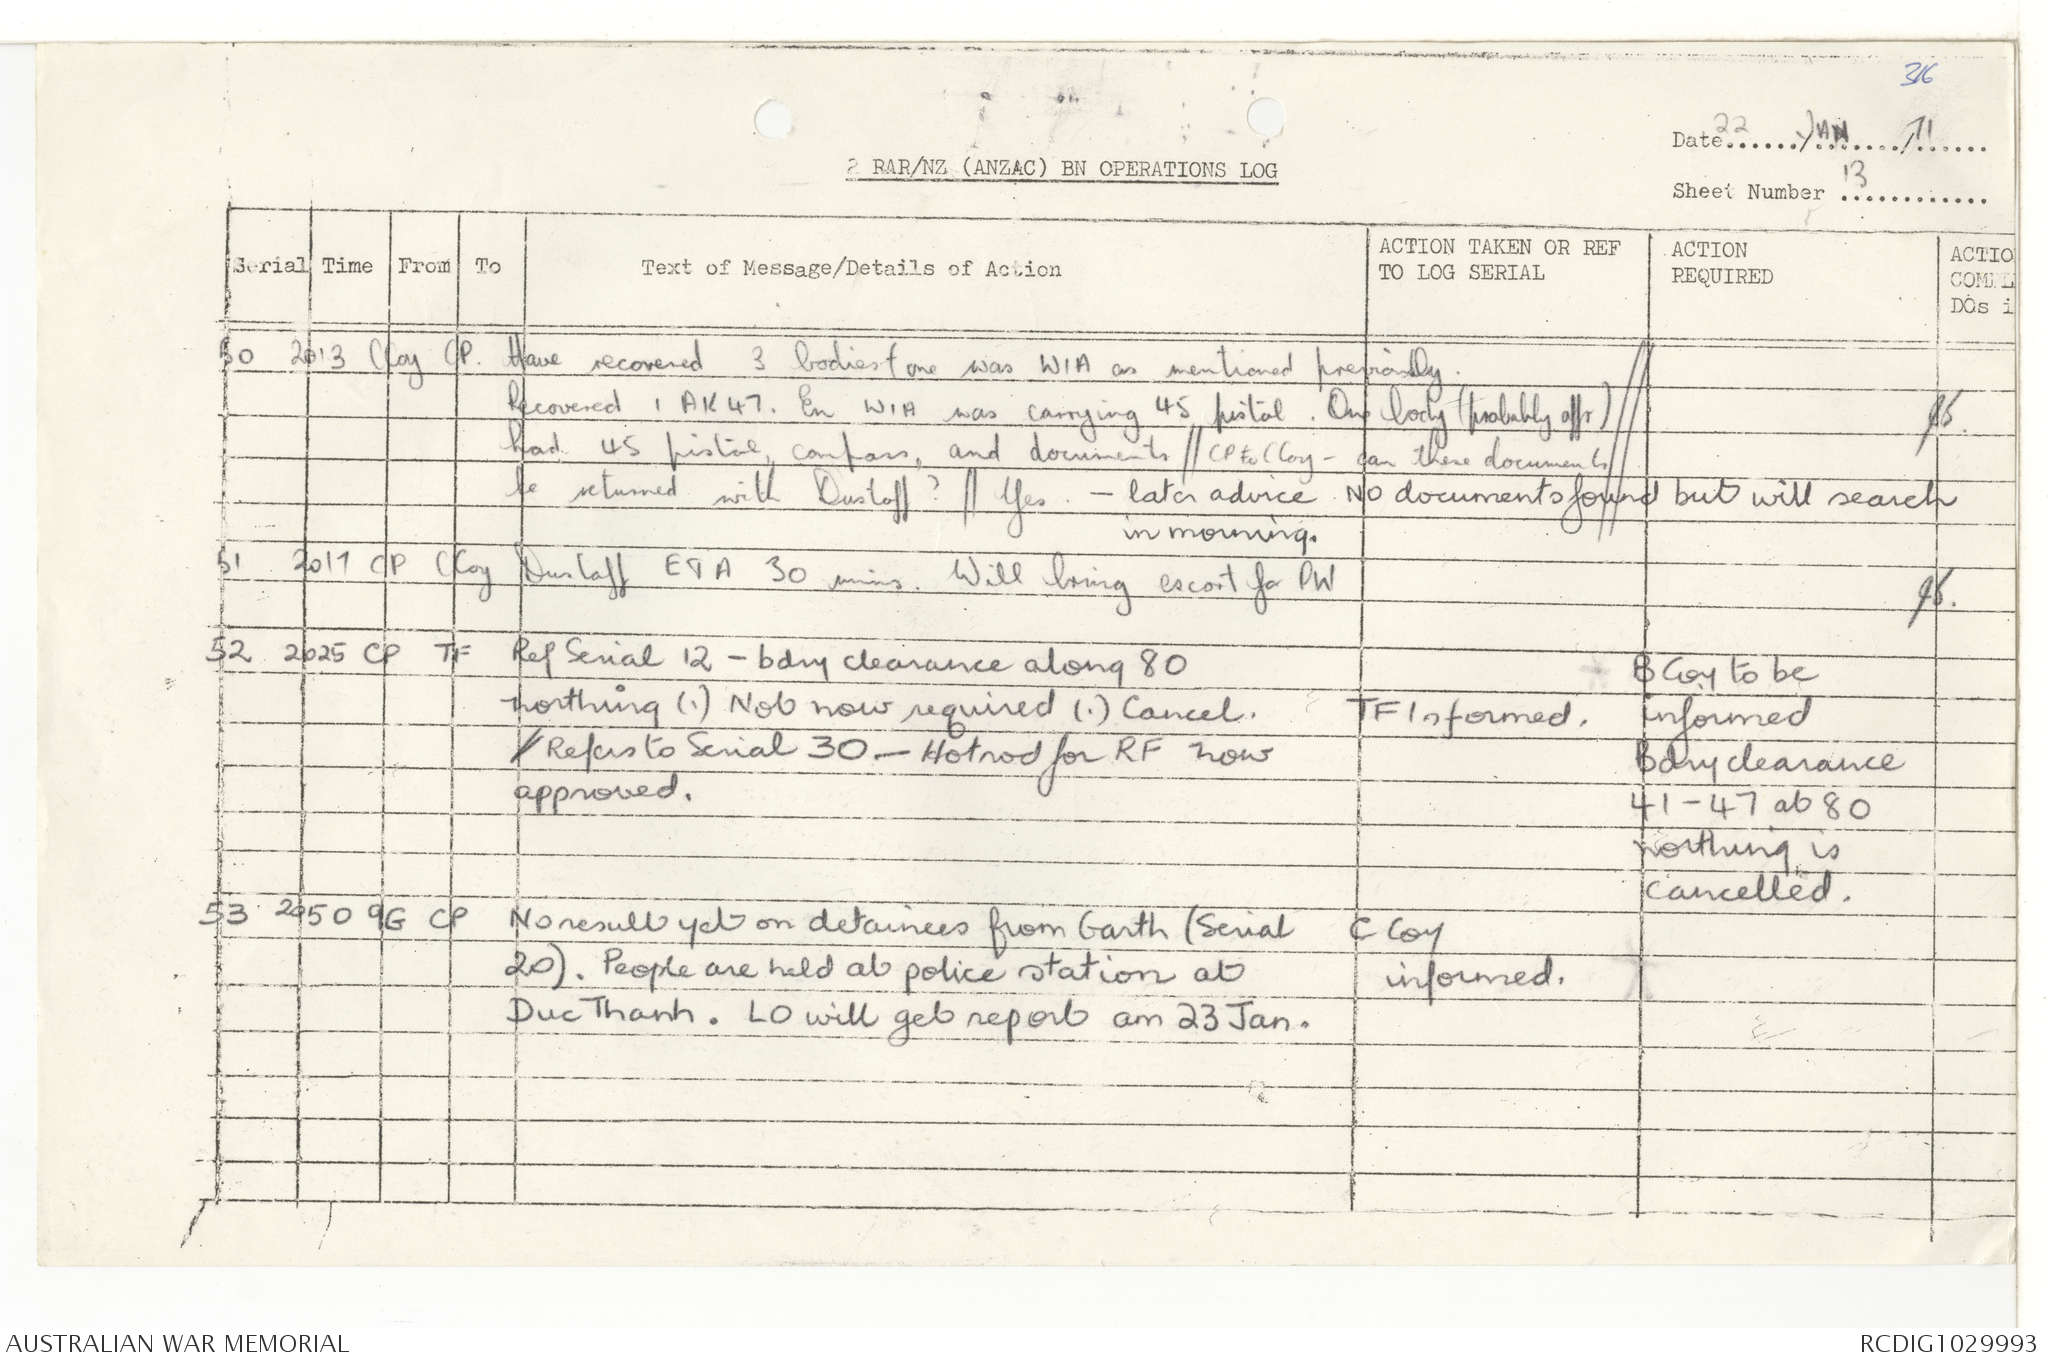 316
Date 22 / JAN / 71
2 RAR/NZ (ANZAC) BN OPERATIONS LOG
Sheet Number 13
Serial Time From To Text of Message/Details of Action ACTION TAKEN OR REF TO LOG SERIAL ACTION REQUIRED ACTIO COMPL DOs i
50 2013 CCoy CP. Have recovered 3 bodies + one was WIA as mentioned previously.
Recovered 1 AK47. En WIA was carrying 45 pistol. One body (probably offr)
had 45 pistol, compass, and documents // CP to CCoy - can these documents
be returned with Dustoff? // Yes. - later advice No documents found but will search
in morning.
51 2017 CP CCoy Dustoff ETA 30 mins. Will bring escort for PW
52 2025 CP TF Ref Serial 12 - bdry clearance along 80
northing (.) Not now required (.) Cancel.
/ Refers to Serial 30 - Hotrod for RF now
approved.
TF Informed.
B Coy to be
informed
Bdry clearance
41 - 47 at 80
northing is
cancelled.
53 2050 9G CP No result yet on detainees from Garth (Serial
20). People are held at police station at
Duc Thanh. LO will get report am 23 Jan.
C Coy
informed.
AUSTRALIAN WAR MEMORIAL
RCDIG1029993